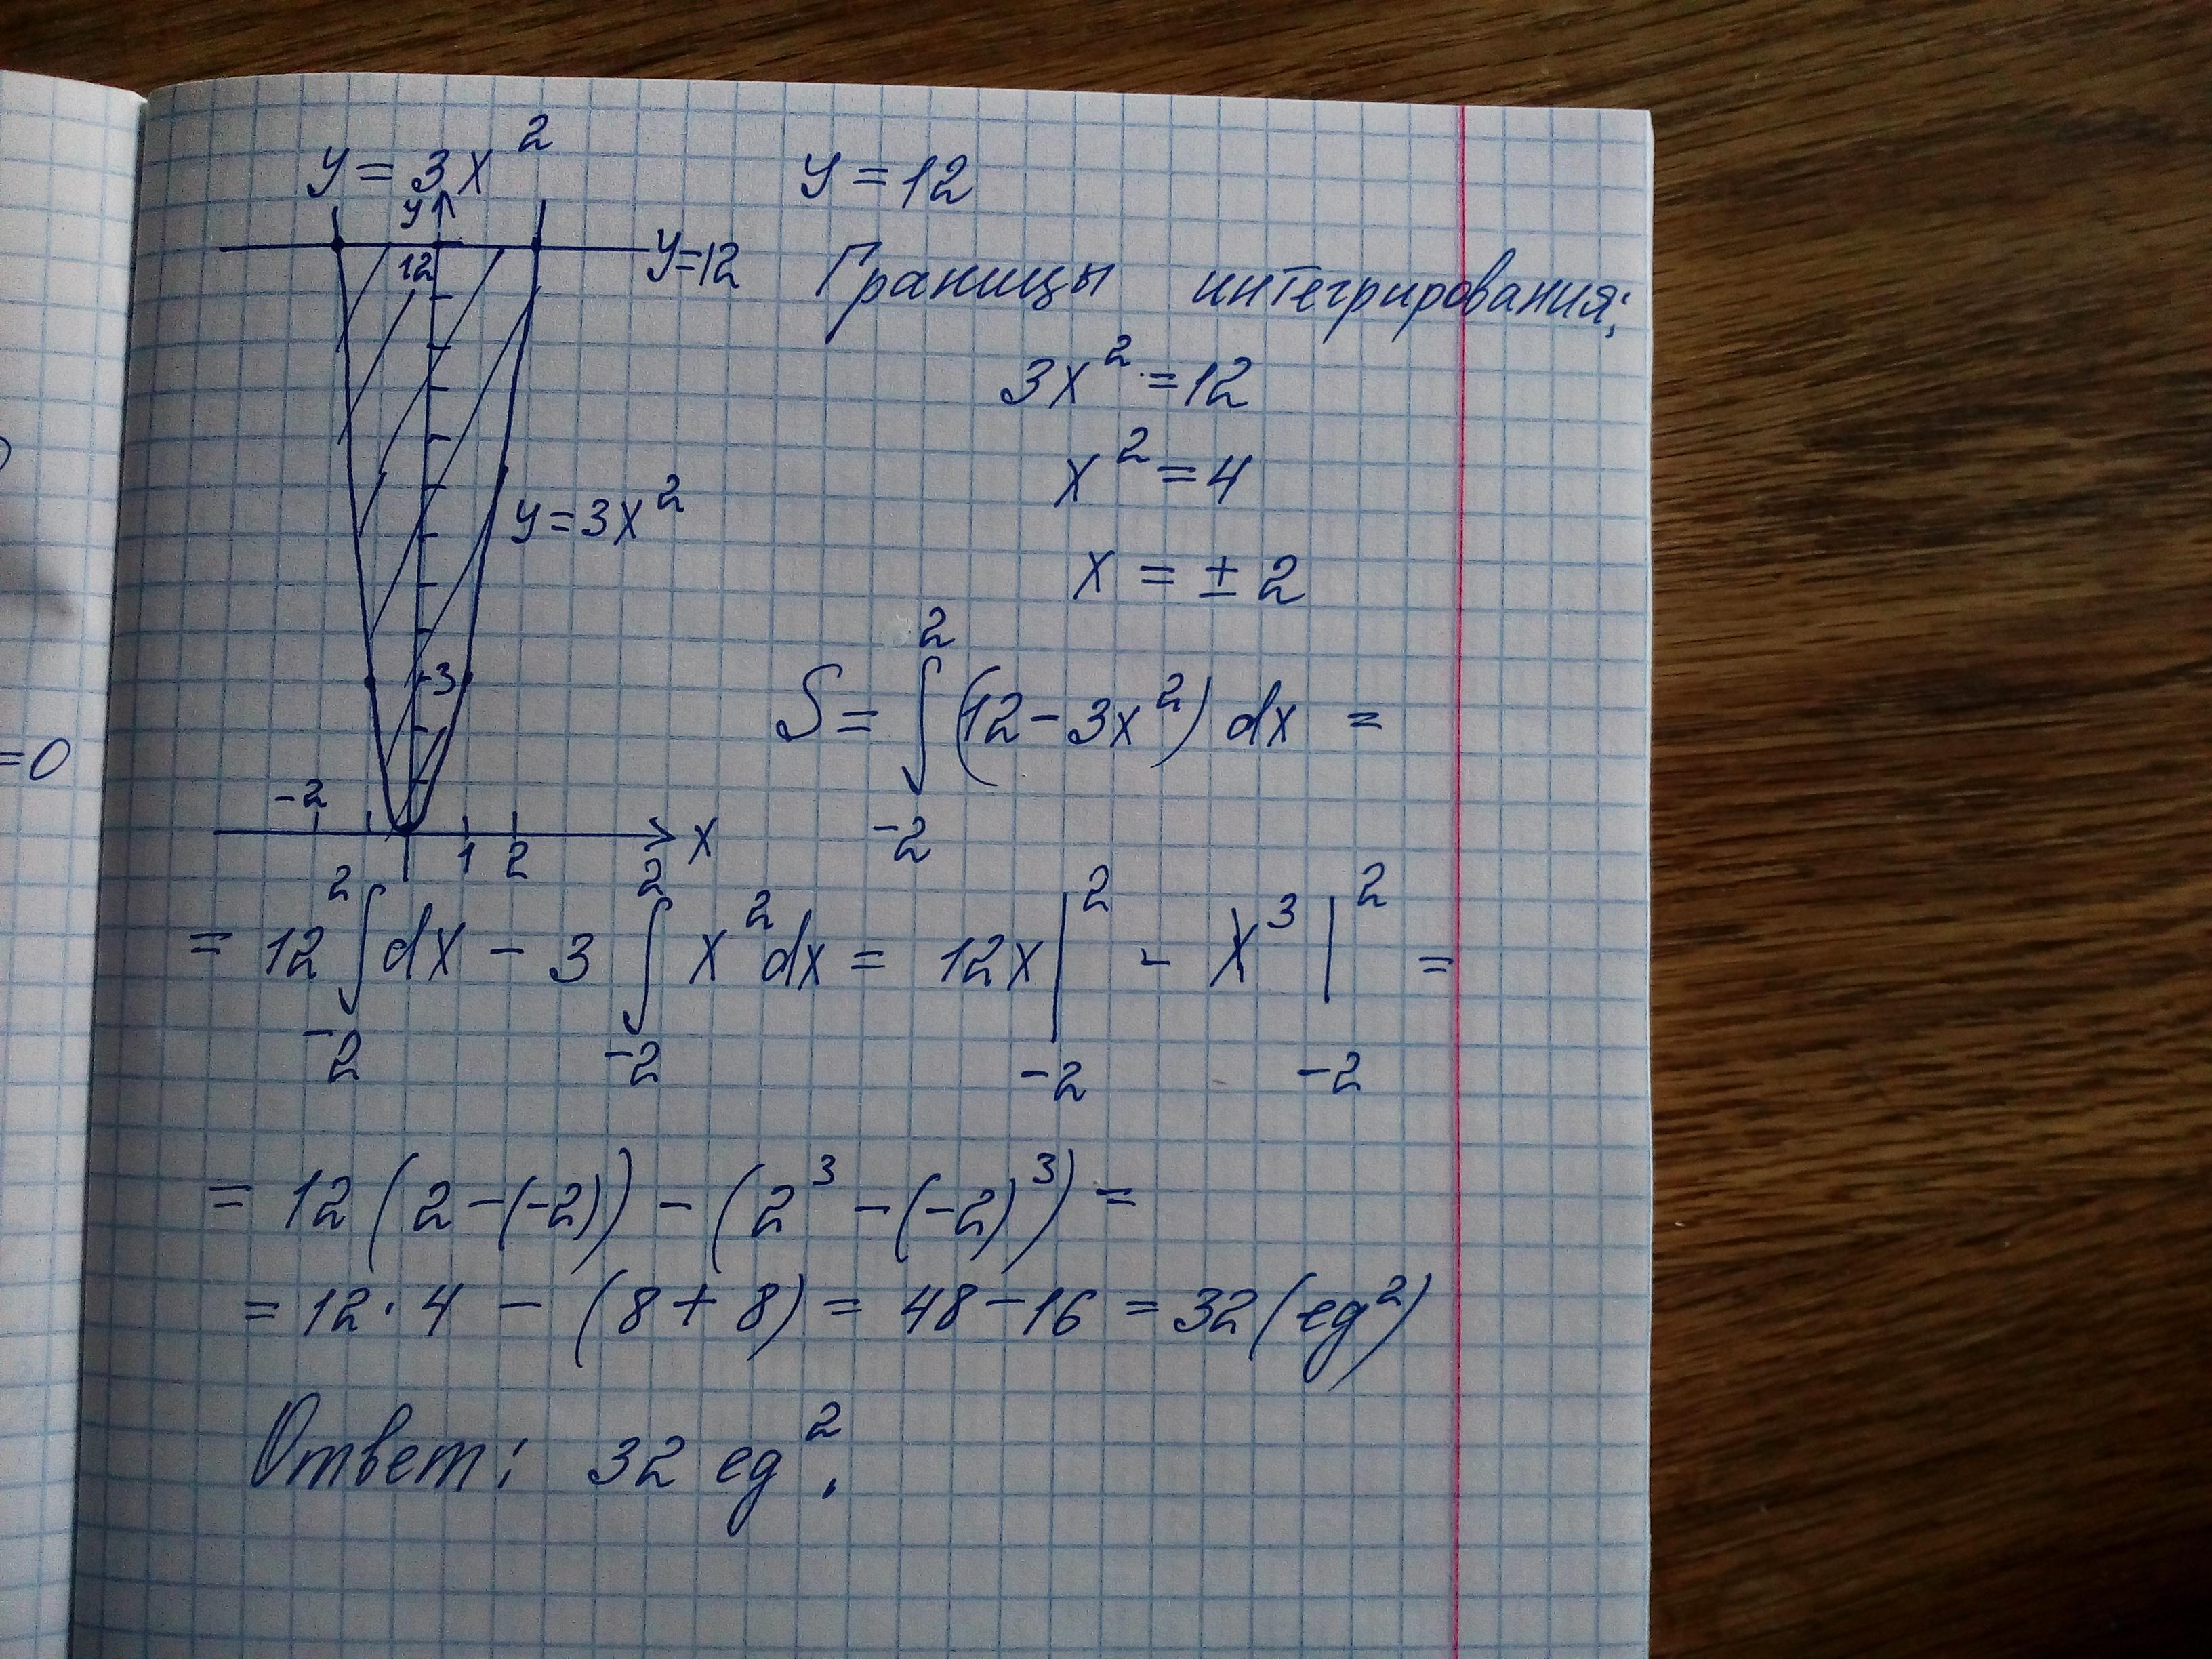 y = 3x² y = 12
y
12 y=12 Границы интегрирования:
3x² = 12
x² = 4
y = 3x²
x = ± 2
3
S = ∫₋₂² (12 - 3x²) dx =
=0
-2 1 2 x
= 12 ∫₋₂² dx - 3 ∫₋₂² x² dx = 12x |₋₂² - x³ |₋₂² =
= 12 (2 - (-2)) - (2³ - (-2)³) =
= 12 · 4 - (8 + 8) = 48 - 16 = 32 (ед²)
Ответ: 32 ед².